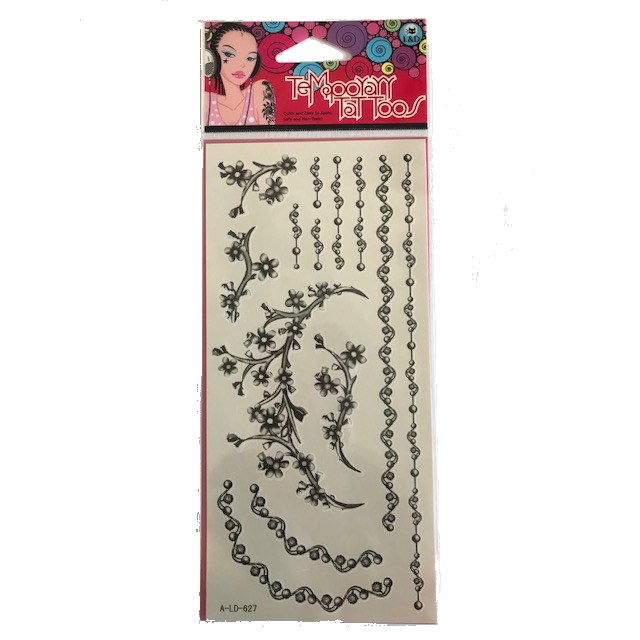 L&D
TeMpoorary
TatToos
Quick and Easy to Apply,
Safe and Non-Toxic!
A-LD-627